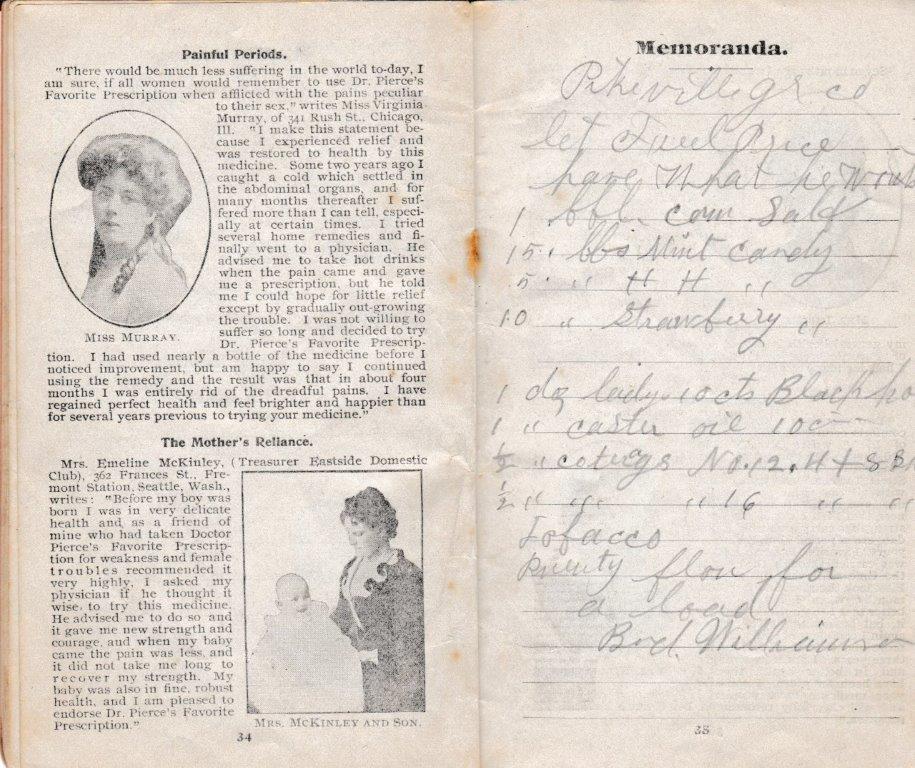 Painful Periods.
"There would be much less suffering in the world to-day, I
am sure, if all women would remember to use Dr. Pierce's
Favorite Prescription when afflicted with the pains peculiar
to their sex," writes Miss Virginia
Murray, of 341 Rush St., Chicago,
Ill. "I make this statement be-
cause I experienced relief and
was restored to health by this
medicine. Some two years ago I
caught a cold which settled in
the abdominal organs, and for
many months thereafter I suf-
fered more than I can tell, especi-
ally at certain times. I tried
several home remedies and fi-
nally went to a physician. He
advised me to take hot drinks
when the pain came and gave
me a prescription, but he told
me I could hope for little relief
except by gradually out-growing
the trouble. I was not willing to
suffer so long and decided to try
Dr. Pierce's Favorite Prescrip-
tion. I had used nearly a bottle of the medicine before I
noticed improvement, but am happy to say I continued
using the remedy and the result was that in about four
months I was entirely rid of the dreadful pains. I have
regained perfect health and feel brighter and happier than
for several years previous to trying your medicine."
MISS MURRAY.
The Mother's Reliance.
Mrs. Emeline McKinley, (Treasurer Eastside Domestic
Club), 362 Frances St., Fre-
mont Station, Seattle, Wash.,
writes: "Before my boy was
born I was in very delicate
health and, as a friend of
mine who had taken Doctor
Pierce's Favorite Prescrip-
tion for weakness and female
troubles recommended it
very highly, I asked my
physician if he thought it
wise to try this medicine.
He advised me to do so and
it gave me new strength and
courage, and when my baby
came the pain was less, and
it did not take me long to
recover my strength. My
baby was also in fine, robust
health, and I am pleased to
endorse Dr. Pierce's Favorite
Prescription."
MRS. MCKINLEY AND SON.
34
Memoranda.
Pikeville gr co
let
have what he
1 bbl. Salt
15 lbs Mint candy
5 " H H "
10 " Strawberry "
1 doz lady 10 cts Black
1 " caster oil 10c
½ " No. 12. H + S B
½ " " " 16 " "
Tobacco
flour for
a load
Williamson
35